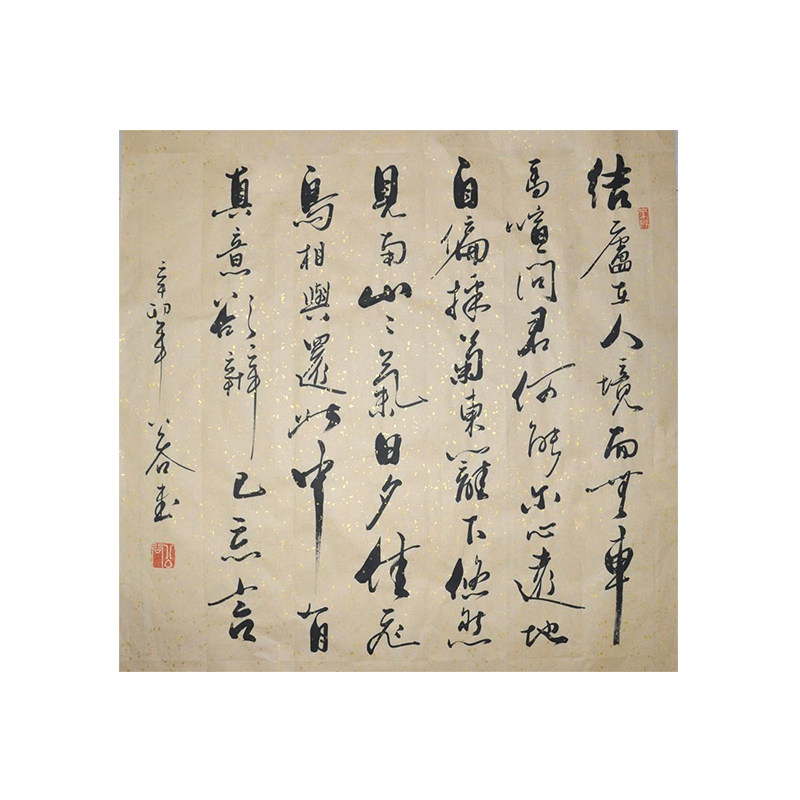 結廬在人境而無車
馬喧問君何能尔心遠地
自偏採菊東籬下悠然
見南山〻氣日夕佳飛
鳥相與還此中有
真意欲辯已忘言
辛卯年 書